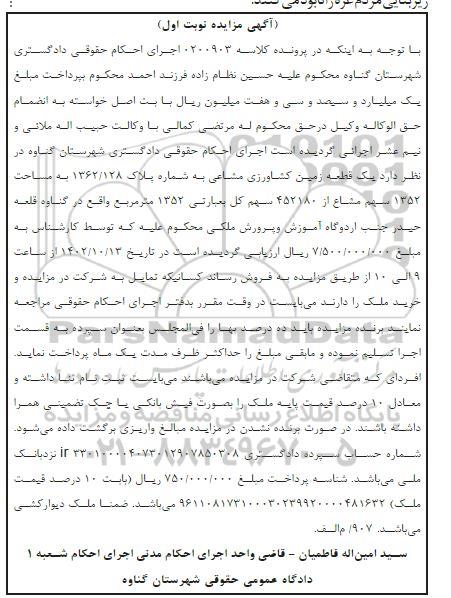 (آگهی مزایده نوبت اول)
با توجه به اینکه در پرونده کلاسه ۰۲۰۰۹۰۳ اجرای احکام حقوقی دادگستری
شهرستان گناوه محکوم علیه حسین نظام زاده فرزند احمد محکوم بپرداخت مبلغ
یک میلیارد و سیصد و سی و هفت میلیون ریال با بت اصل خواسته به انضمام
حق الوکاله وکیل درحق محکوم له مرتضی کمالی با وکالت حبیب اله ملائی و
نیم عشر اجرائی گردیده است اجرای احکام حقوقی دادگستری شهرستان گناوه در
نظر دارد یک قطعه زمین کشاورزی مشاعی به شماره پلاک ۱۳۶۲/۱۲۸ به مساحت
۱۳۵۲ سهم مشاع از ۴۵۲۱۸۰ سهم کل بعبارتی ۱۳۵۲ مترمربع واقع در گناوه قلعه
حیدر جنب اردوگاه آموزش وپرورش ملکی محکوم علیه که توسط کارشناس به
مبلغ ۷/۵۰۰/۰۰۰/۰۰۰ ریال ارزیابی گردیده است در تاریخ ۱۴۰۲/۱۰/۱۳ از ساعت
۹ الی ۱۰ از طریق مزایده به فروش رساند کسانیکه تمایل به شرکت در مزایده و
خرید ملک را دارند می‌بایست در وقت مقرر بدفتر اجرای احکام حقوقی مراجعه
نمایند برنده مزایده باید ده درصد بها را فی‌المجلس بعنوان سپرده به قسمت
اجرا تسلیم نموده و مابقی مبلغ را حداکثر ظرف مدت یک ماه پرداخت نماید.
افرادی که متقاضی شرکت در مزایده می‌باشند می‌بایست ثبت نام ثنا داشته و
معادل ۱۰ درصد قیمت پایه ملک را بصورت فیش بانکی یا چک تضمینی همراه
داشته باشند. در صورت برنده نشدن در مزایده مبالغ واریزی برگشت داده می‌شود.
شماره حساب سپرده دادگستری ir ۳۳۰۱۰۰۰۰۴۰۷۳۰۱۲۹۰۷۸۵۰۳۰۸ نزدبانک
ملی می‌باشد. شناسه پرداخت مبلغ ۷۵۰/۰۰۰/۰۰۰ ریال (بابت ۱۰ درصد قیمت
ملک) ۹۶۱۱۰۸۱۷۳۱۰۰۰۳۰۲۳۹۹۲۰۰۰۰۴۸۱۶۳۲ می‌باشد. ضمنا ملک دیوارکشی
می‌باشد. ۹۰۷/ م‌الف.
سید امین‌اله فاطمیان – قاضی واحد اجرای احکام مدنی اجرای احکام شعبه ۱
دادگاه عمومی حقوقی شهرستان گناوه
ParsNamadData
پایگاه اطلاع رسانی مناقصه و مزایده
۰۲۱-۸۸۳۴۹۶۷۰-۵